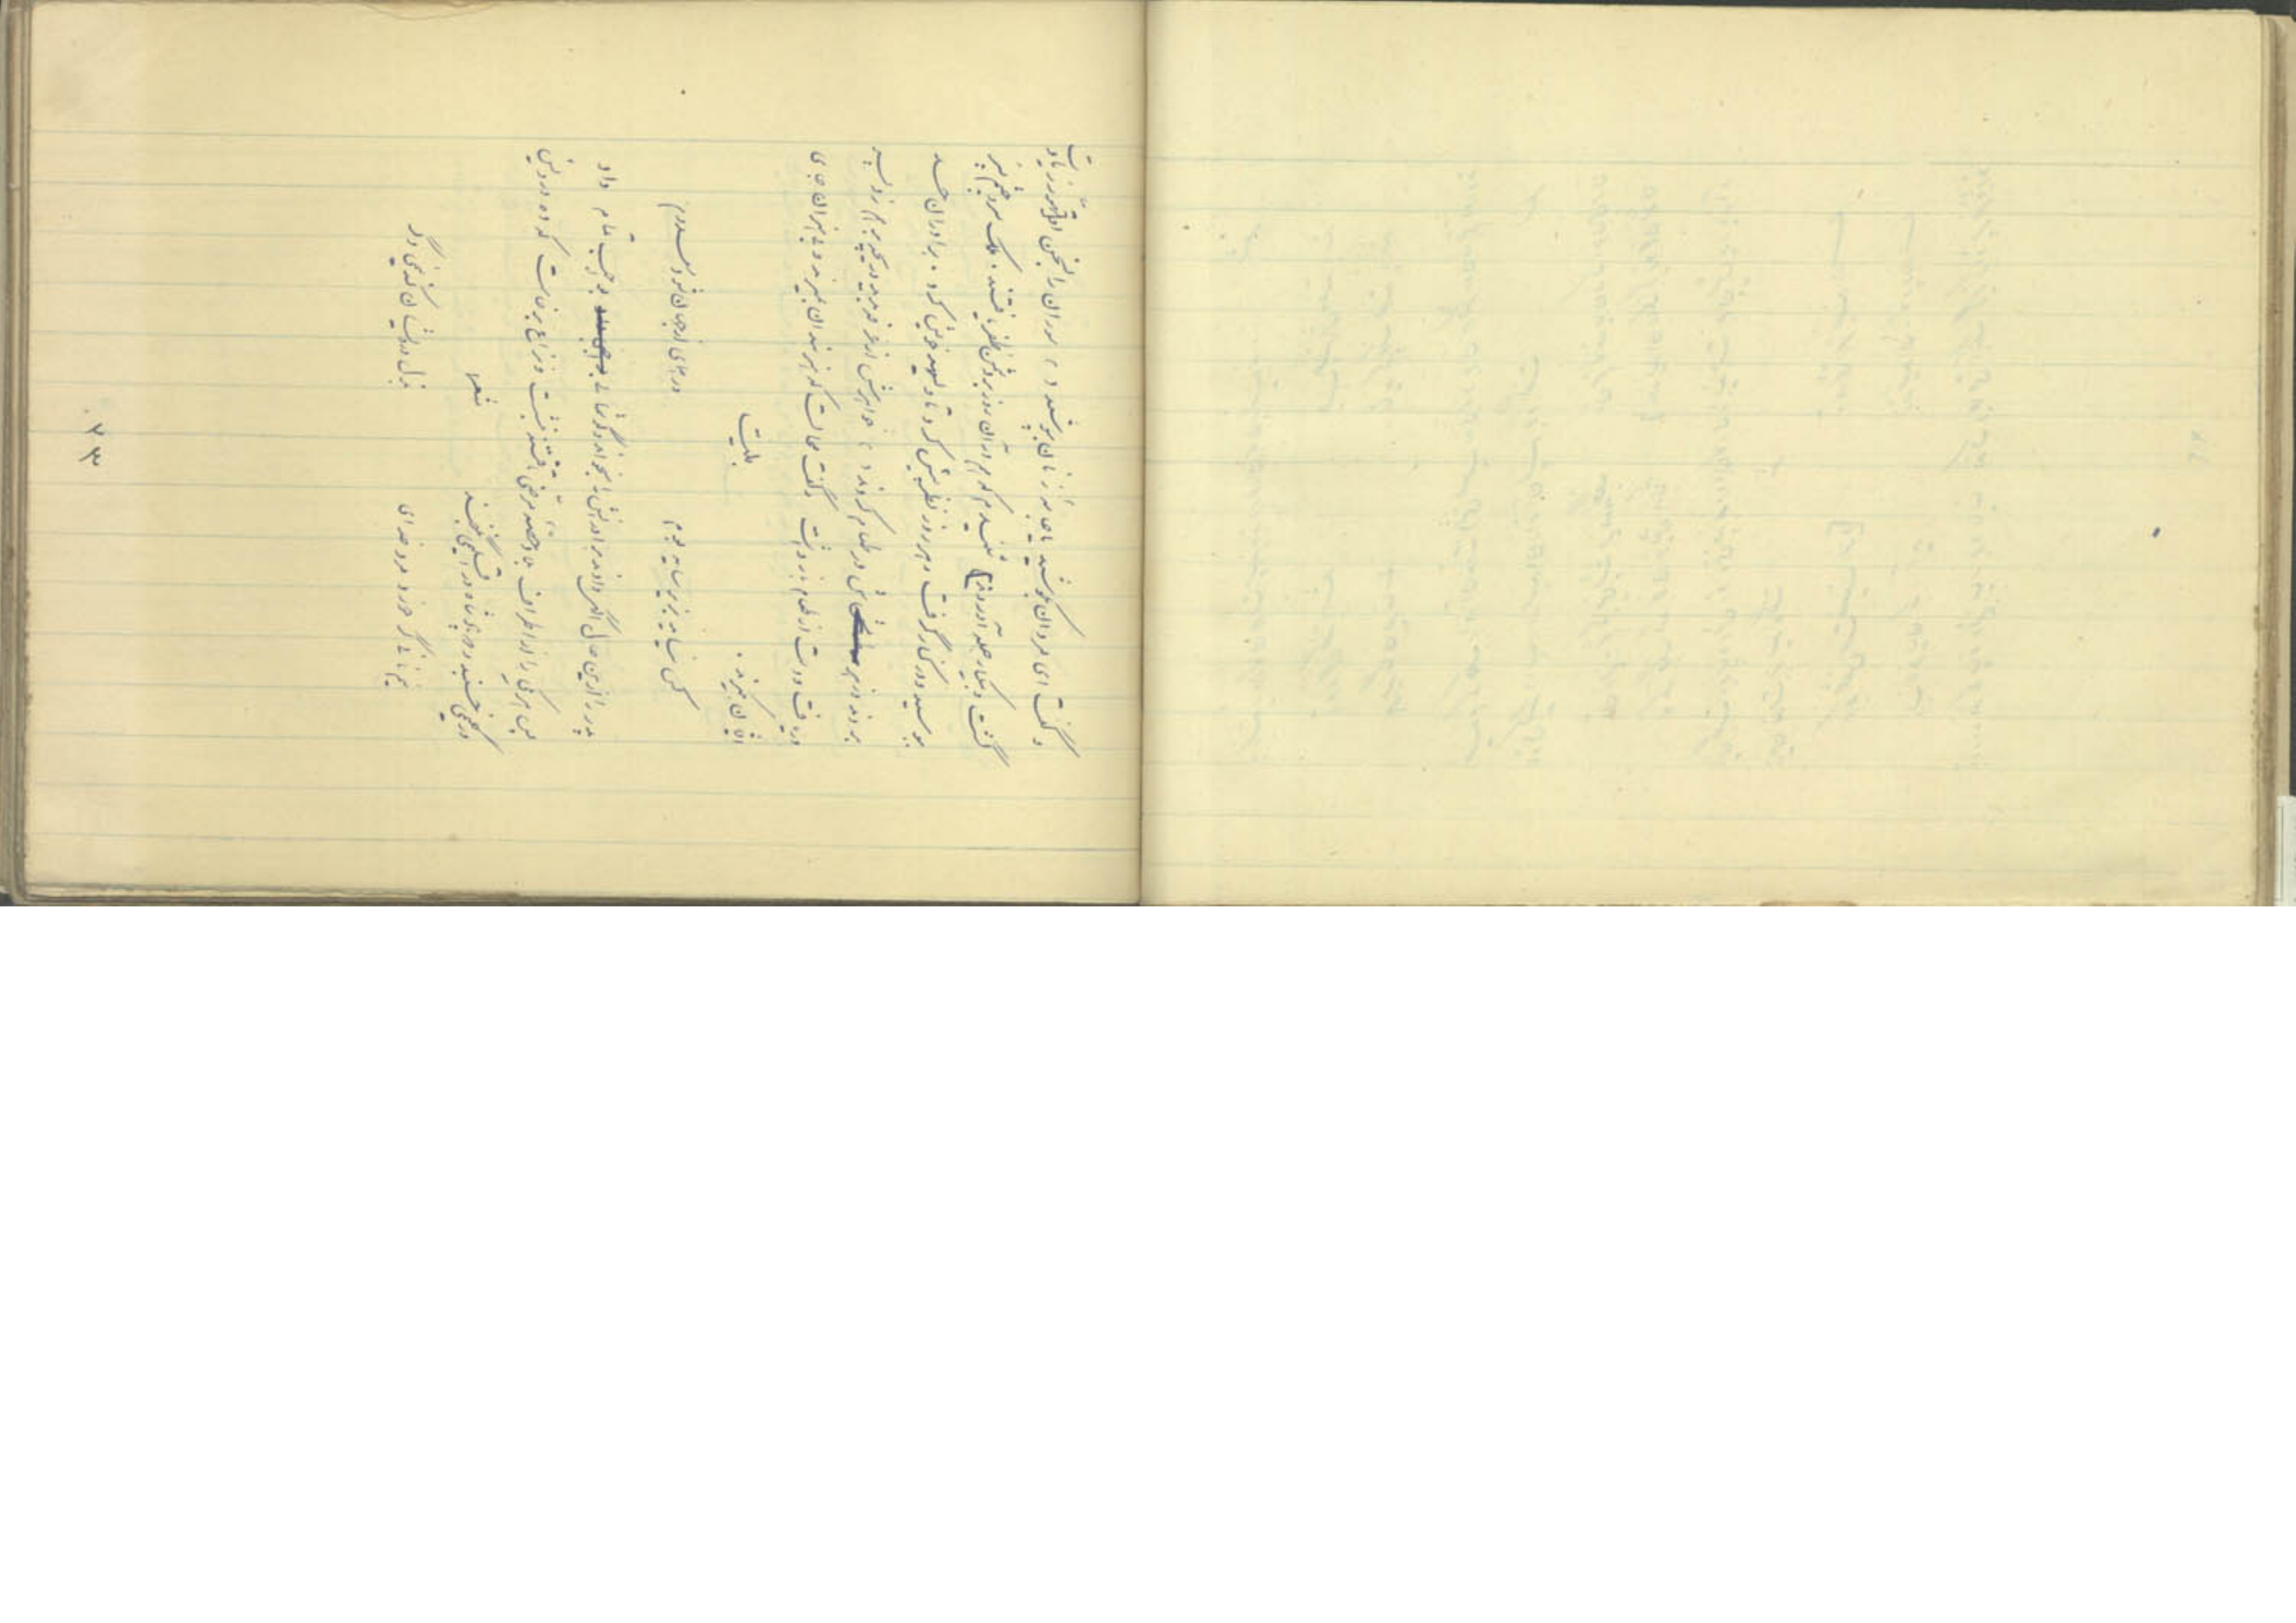 و گفت ای مردان بکوشید یا جامه زنان بپوشید ؛ سواران را بسخن او تهور زیادت
گشت و بیکبار حمله آوردند شنیدم که هم در آن روز بر دشمن ظفر یافتند . ملک سر و چشم پسر
ببوسید و در کنار گرفت و هر روز نظر بیش کرد تا ولیعهد خویش کرد . برادران حسد
بردند و زهر در طعام کردند ؛ خواهرش از غرفه بدید دریچه بر هم زد پسر
دریافت و دست از طعام باز داشت و گفت محالست که هنرمندان بمیرند و بی هنران جای
ایشان بگیرند .
بیت
کس نیاید بزیر سایه بوم ور همای از جهان شود معدوم
پدر را ازین حال آگهی دادند برادرانش را بخواند و گوشمالی بواجب داد
پس هر یکی را از اطراف بلاد حصه مرضی فتنه بنشست و نزاع برخاست که ده درویش
در گلیمی خسبند و دو پادشاه در اقلیمی نگنجند
شعر
نیم نانی گر خورد مرد خدای بذل درویشان کند نیمی دگر
۷۳